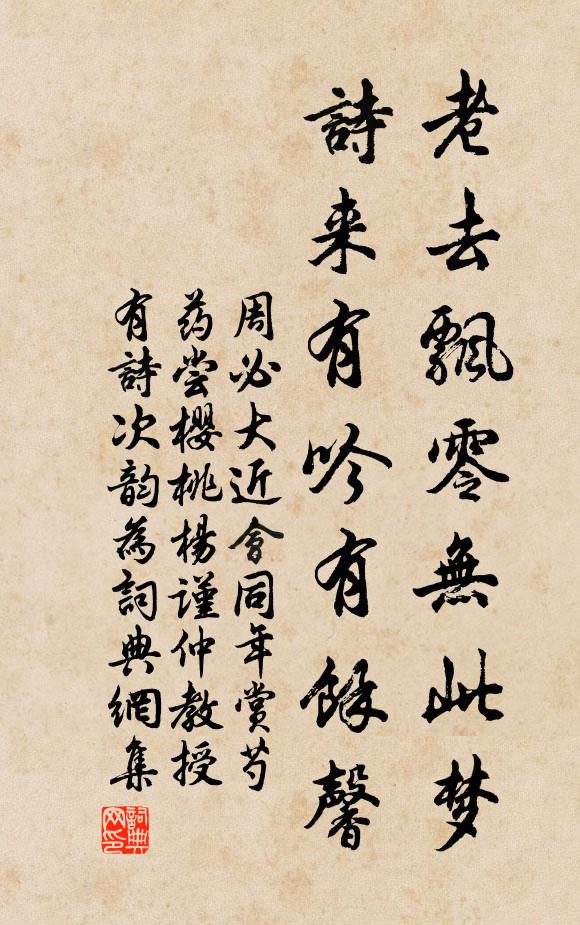 老去飄零無此梦
詩来有吟有餘馨
周必大近會同年賞芍
药尝櫻桃楊谨仲教授
有詩次韵為詞典網集
詞典
网印